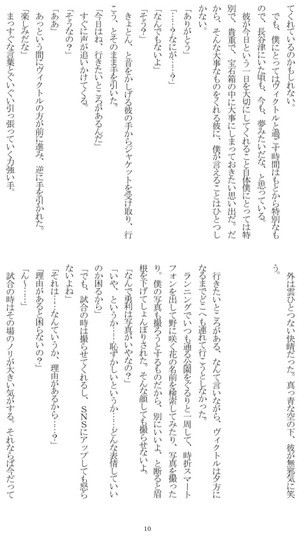 てくれているのかもしれない。
でも、僕にとってはヴィクトルと過ごす時間はもとから特別なもので、長谷津にいた頃も、今も、夢みたいだな、と思っている。
彼が今日という一日を大切にしてくれること自体僕にとっては特別で、貴重で、宝石箱の中に大事にしまっておきたい思い出だ。だから、そんな大事なものをくれる彼に、僕が言えることはひとつしかない。
「ありがとう」
「……? なにが……?」
「なんでもないよ」
「そう?」
きょとん、と首をかしげる彼の手からジャケットを受け取り、行こう、とそのまま手を引いた。
「今日はね、行きたいところがあるんだ」
すぐに声が追いかけてくる。
「そうなの?」
「ああ」
あっという間にヴィクトルの方が前に進み、逆に手を引かれた。
「楽しみだな」
まっすぐな言葉でぐいぐい引っ張っていく力強い手。
外は雲ひとつない快晴だった。真っ青な空の下、彼が無邪気に笑う。
行きたいところがある、なんて言いながら、ヴィクトルは夕方になるまでどこへも連れて行こうとしなかった。
ランニングでいつも通る公園をぐるりと一周して、時折スマートフォンを出して野に咲く花の名前を検索してみたり、写真を撮ったり。僕の写真も撮ろうとするものだから、別にいいよ、と断ると眉根を下げてしょんぼりされた。そんな顔しても撮らせないよ。
「なんで勇利は写真がいやなの?」
「いや、というか……恥ずかしいというか……どんな表情していいのか困るから」
「でも、試合の時は撮らせてくれるし、SNSにアップしても怒らないよね」
「それは……なんていうか、理由があるから……?」
「理由があると困らないの?」
「ん〜……」
試合の時はその場のノリが大きい気がする。それならばただって
10